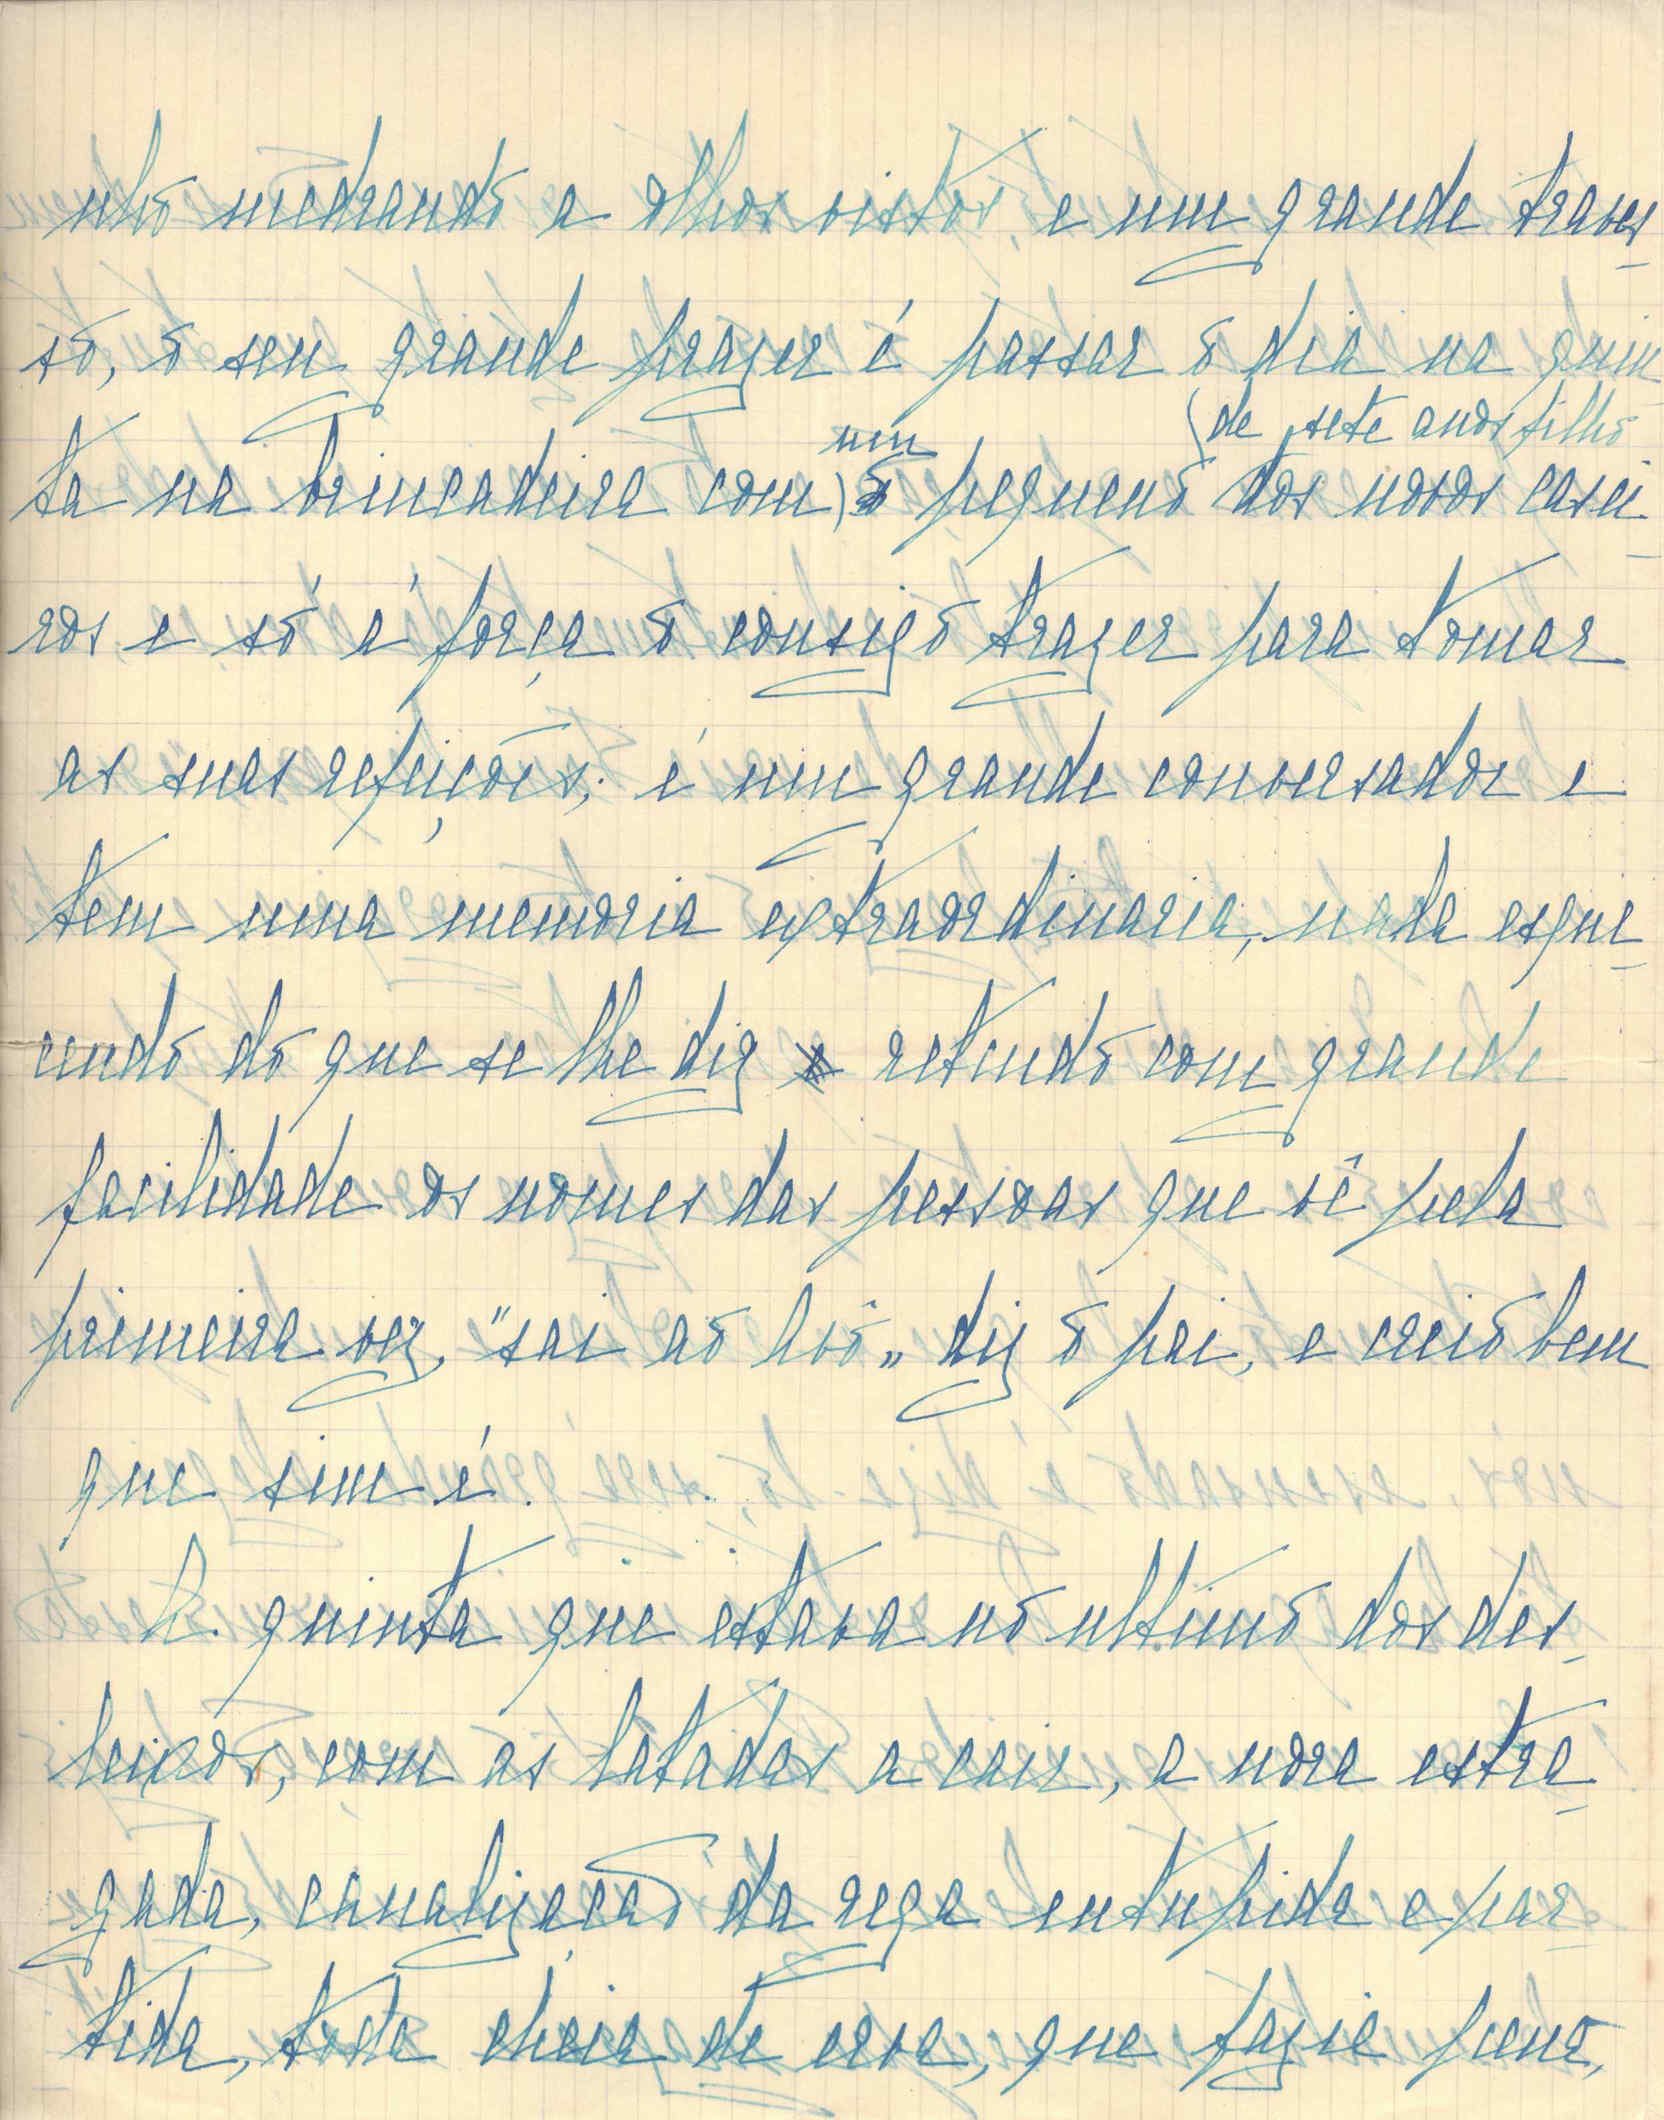 nho medrando a olhos vistos, e um grande traves
so, o seu grande prazer é passar o dia na quin
(de sete anos filho
um
ta na brincadeira com) o pequeno dos novos casei-
ros e só á força o consigo trazer para tomar
as suas refeições; é um grande conversador e
tem uma memoria extraordinaria, nada esque-
cendo do que se lhe diz e retendo com grande
facilidade os nomes das pessoas que vê pela
primeira vez, "sai ao Avô„ diz o pai, e creio bem
que sim é.
A quinta que estava no ultimo dos des-
leixos, com as latadas a cair, a nora estra-
gada, canalização da rega entupida e par-
tida, toda cheia de erva, que fazia pena,